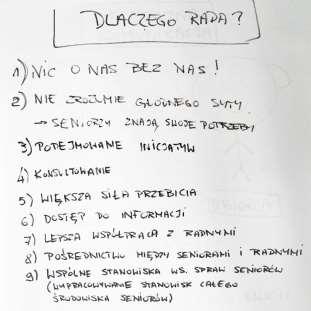 DLACZEGO RADA?
1) NIC O NAS BEZ NAS!
2) NIE ZROZUMIE GŁODNEGO SYTY
→ SENIORZY ZNAJĄ SWOJE POTRZEBY
3) PODEJMOWANIE INICJATYW
4) KONSULTOWANIE
5) WIĘKSZA SIŁA PRZEBICIA
6) DOSTĘP DO INFORMACJI
7) LEPSZA WSPÓŁPRACA Z RADNYMI
8) POŚREDNICTWO MIĘDZY SENIORAMI I RADNYMI
9) WSPÓLNE STANOWISKA WS. SPRAW SENIORÓW
(WYPRACOWYWANIE STANOWISK CAŁEGO
ŚRODOWISKA SENIORÓW)